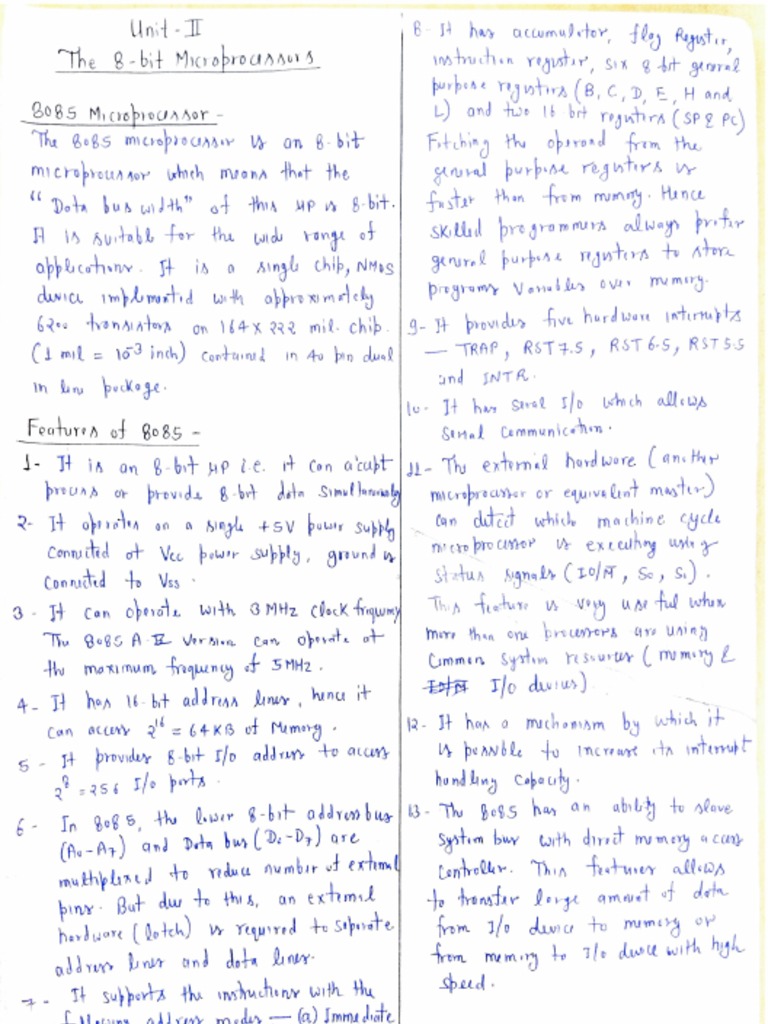 Unit - II
The 8-bit Microprocessors
8085 Microprocessor -
The 8085 microprocessor is an 8-bit
microprocessor which means that the
"Data bus width" of this MP is 8-bit.
It is suitable for the wide range of
applications. It is a single chip, NMOS
device implemented with approximately
6200 transistors on 164 x 222 mil. chip.
(1 mil = 10⁻³ inch) contained in 40 pin dual
in line package.
Features of 8085 -
1- It is an 8-bit MP i.e. it can accept
process or provide 8-bit data simultaneously
2- It operates on a single +5V power supply
connected at Vcc power supply, ground is
connected to Vss.
3 - It can operate with 3 MHz clock frequency
The 8085 A-II version can operate at
the maximum frequency of 5 MHz.
4 - It has 16-bit address lines, hence it
can access 2¹⁶ = 64KB of Memory.
5 - It provides 8-bit I/O address to access
2⁸ = 256 I/O ports.
6 - In 8085, the lower 8-bit address bus
(A0-A7) and Data bus (D0-D7) are
multiplexed to reduce number of external
pins. But due to this, an external
hardware (latch) is required to separate
address lines and data lines.
7 - It supports the instructions with the
following address modes — (a) Immediate
8- It has accumulator, flag Register,
instruction register, six 8 bit general
purpose registers (B, C, D, E, H and
L) and two 16 bit registers (SP & PC)
Fetching the operand from the
general purpose registers is
faster than from memory. Hence
skilled programmers always prefer
general purpose registers to store
programs variables over memory.
9- It provides five hardware interrupts
— TRAP, RST 7.5, RST 6.5, RST 5.5
and INTR.
10- It has serial I/O which allows
serial communication.
11- The external hardware (another
microprocessor or equivalent master)
can detect which machine cycle
microprocessor is executing using
status signals (IO/M̅, S0, S1).
This feature is very useful when
more than one processors are using
common system resources (memory &
I/O devices)
12- It has a mechanism by which it
is possible to increase its interrupt
handling capacity.
13- The 8085 has an ability to slave
system bus with direct memory access
controller. This features allows
to transfer large amount of data
from I/O device to memory or
from memory to I/O device with high
speed.